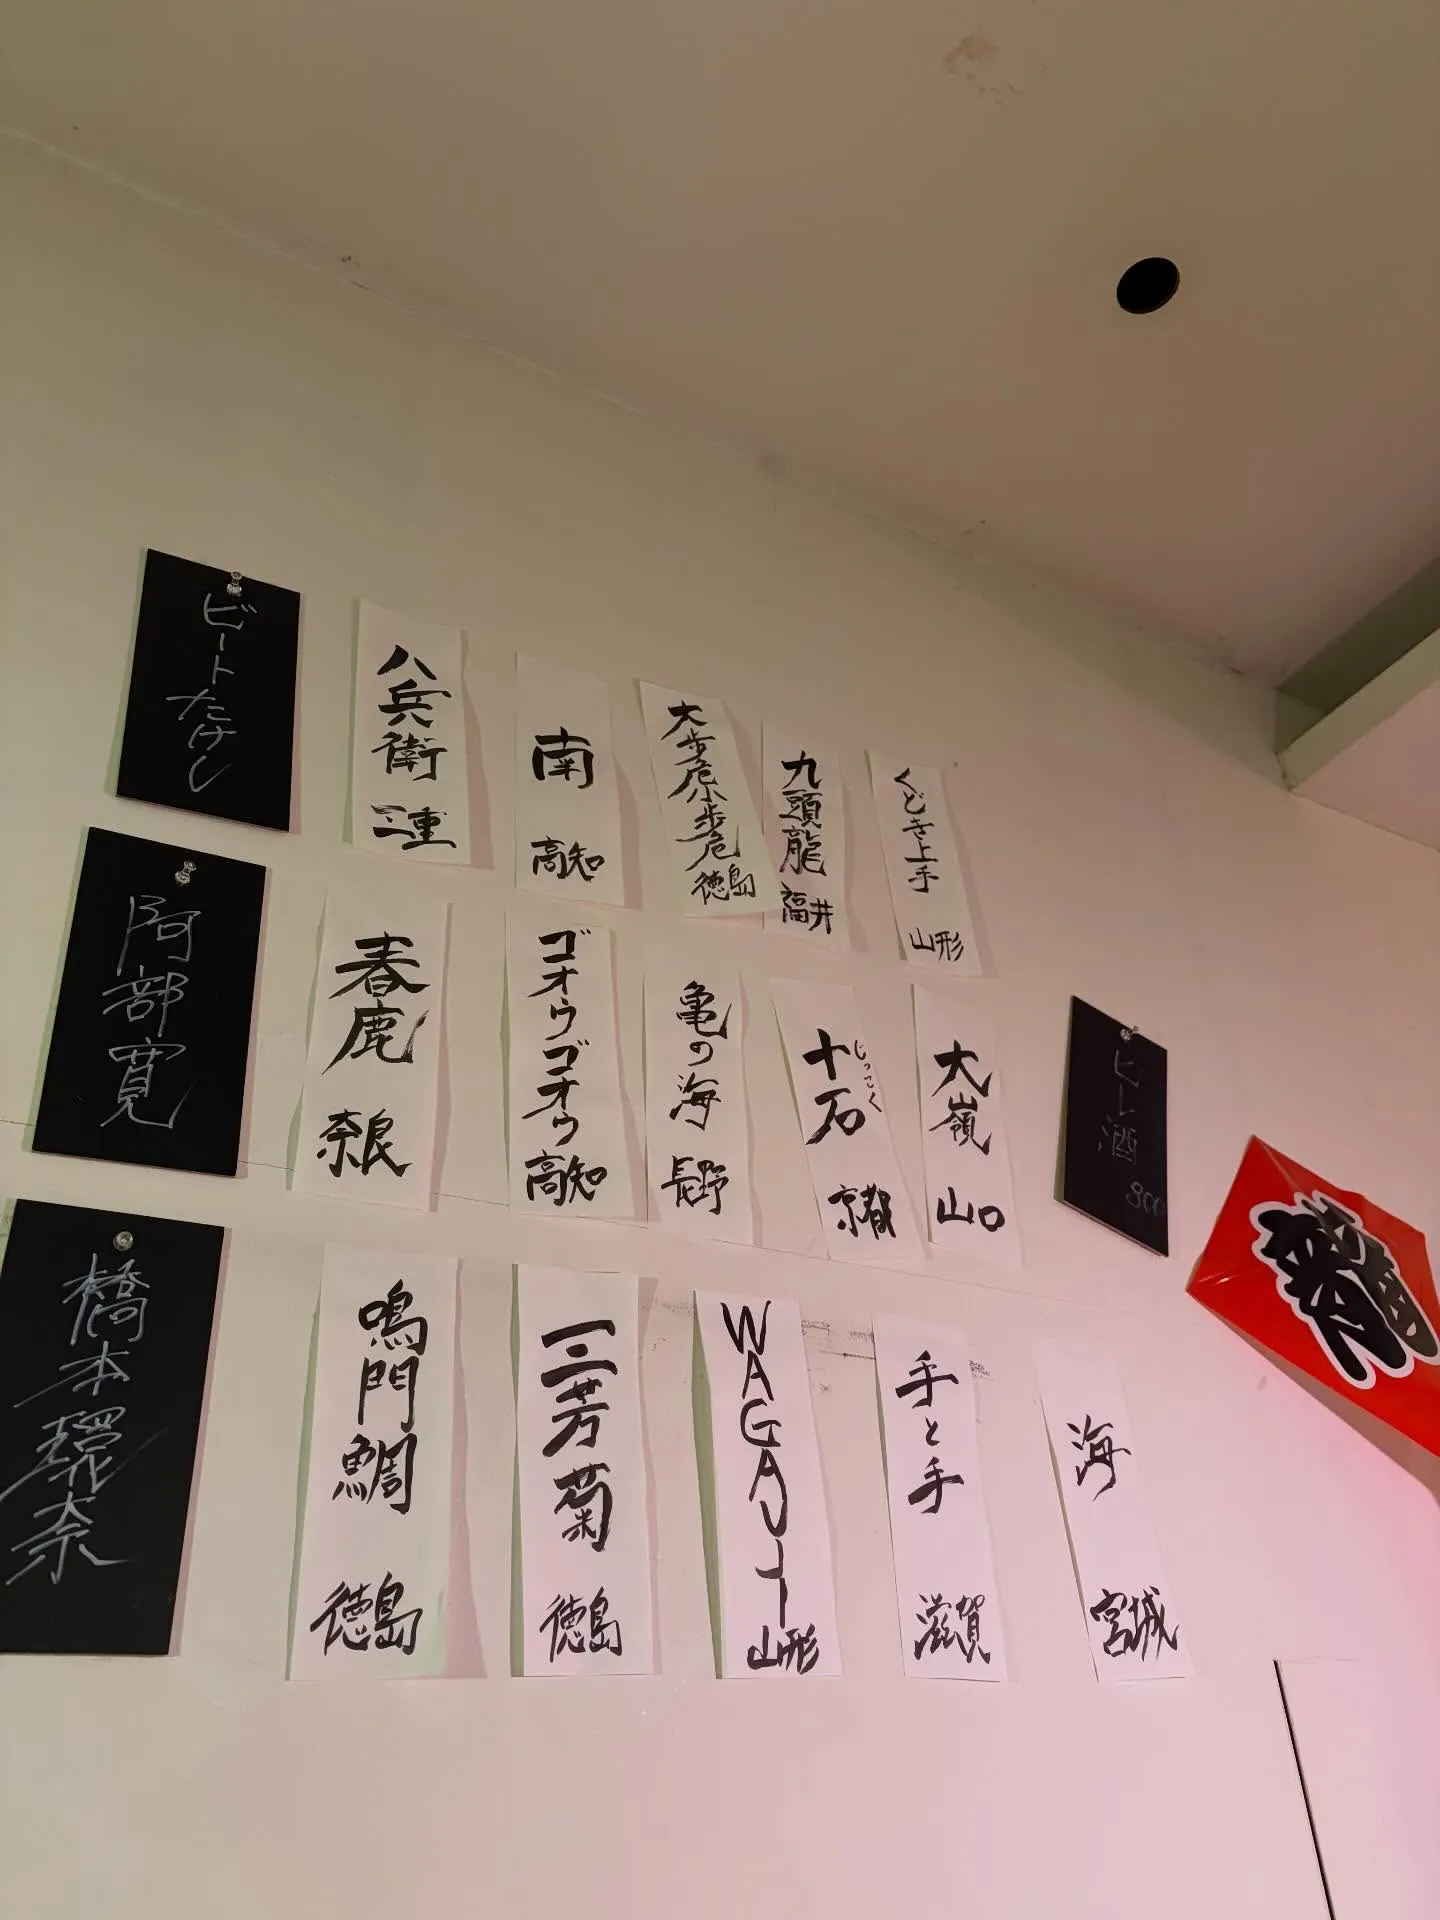 ビートたけし
八兵衛 三重
南 高知
大歩危小歩危 徳島
九頭龍 福井
くどき上手 山形
阿部寛
春鹿 奈良
ゴオウゴオウ 高知
亀の海 長野
十石 じっこく 京都
大嶺 山口
ヒレ酒 800
橋本環奈
鳴門鯛 徳島
三芳菊 徳島
WAGAUJI 山形
手と手 滋賀
海 宮城